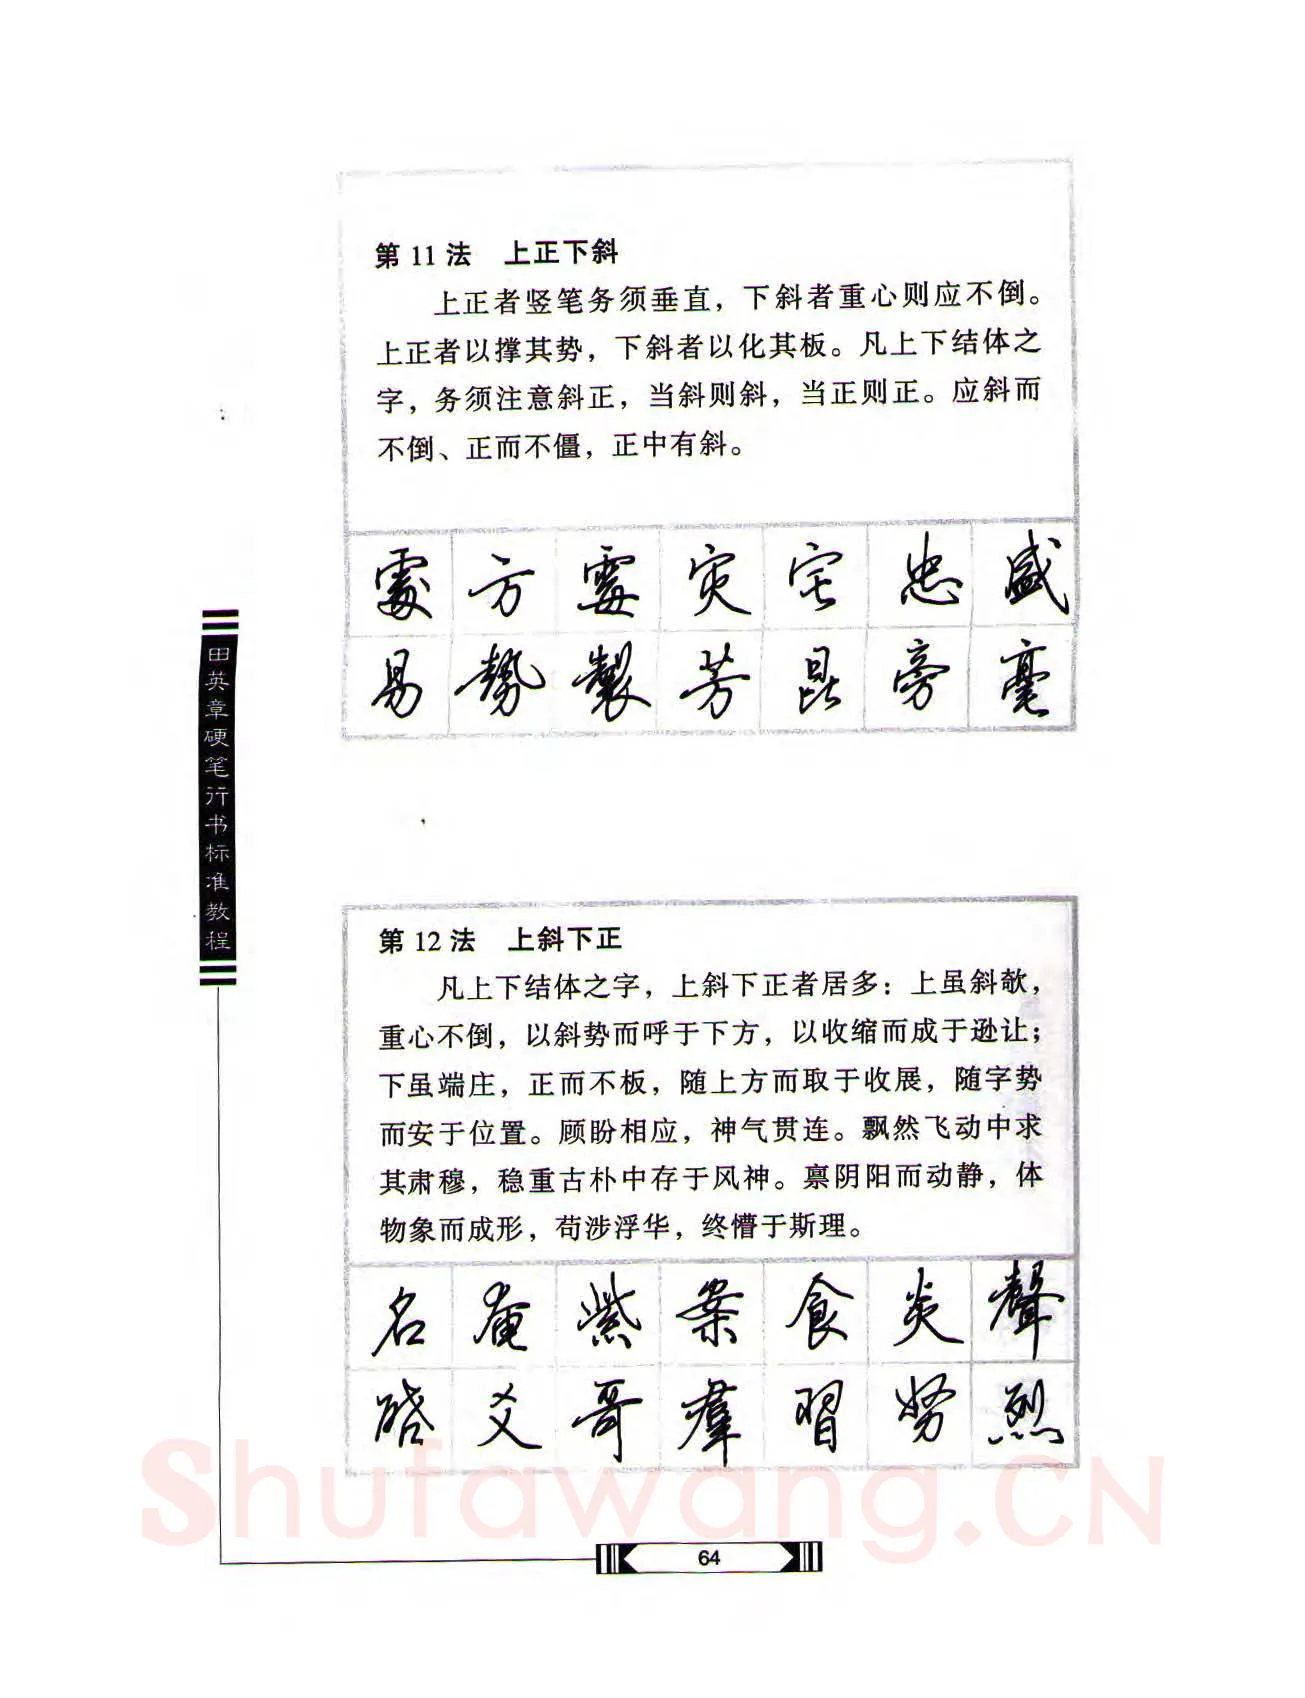 第 11 法　上正下斜
上正者竖笔务须垂直，下斜者重心则应不倒。
上正者以撑其势，下斜者以化其板。凡上下结体之
字，务须注意斜正，当斜则斜，当正则正。应斜而
不倒、正而不僵，正中有斜。
方 灾 宅 忠 盛
易 勢 製 芳 昆 旁 毫
田英章硬笔行书标准教程
第 12 法　上斜下正
凡上下结体之字，上斜下正者居多：上虽斜欹，
重心不倒，以斜势而呼于下方，以收缩而成于逊让；
下虽端庄，正而不板，随上方而取于收展，随字势
而安于位置。顾盼相应，神气贯连。飘然飞动中求
其肃穆，稳重古朴中存于风神。禀阴阳而动静，体
物象而成形，苟涉浮华，终懵于斯理。
名 奄 紫 案 食 炎 聲
啓 爻 哥 羣 習 努 烈
Shufawang.CN
64